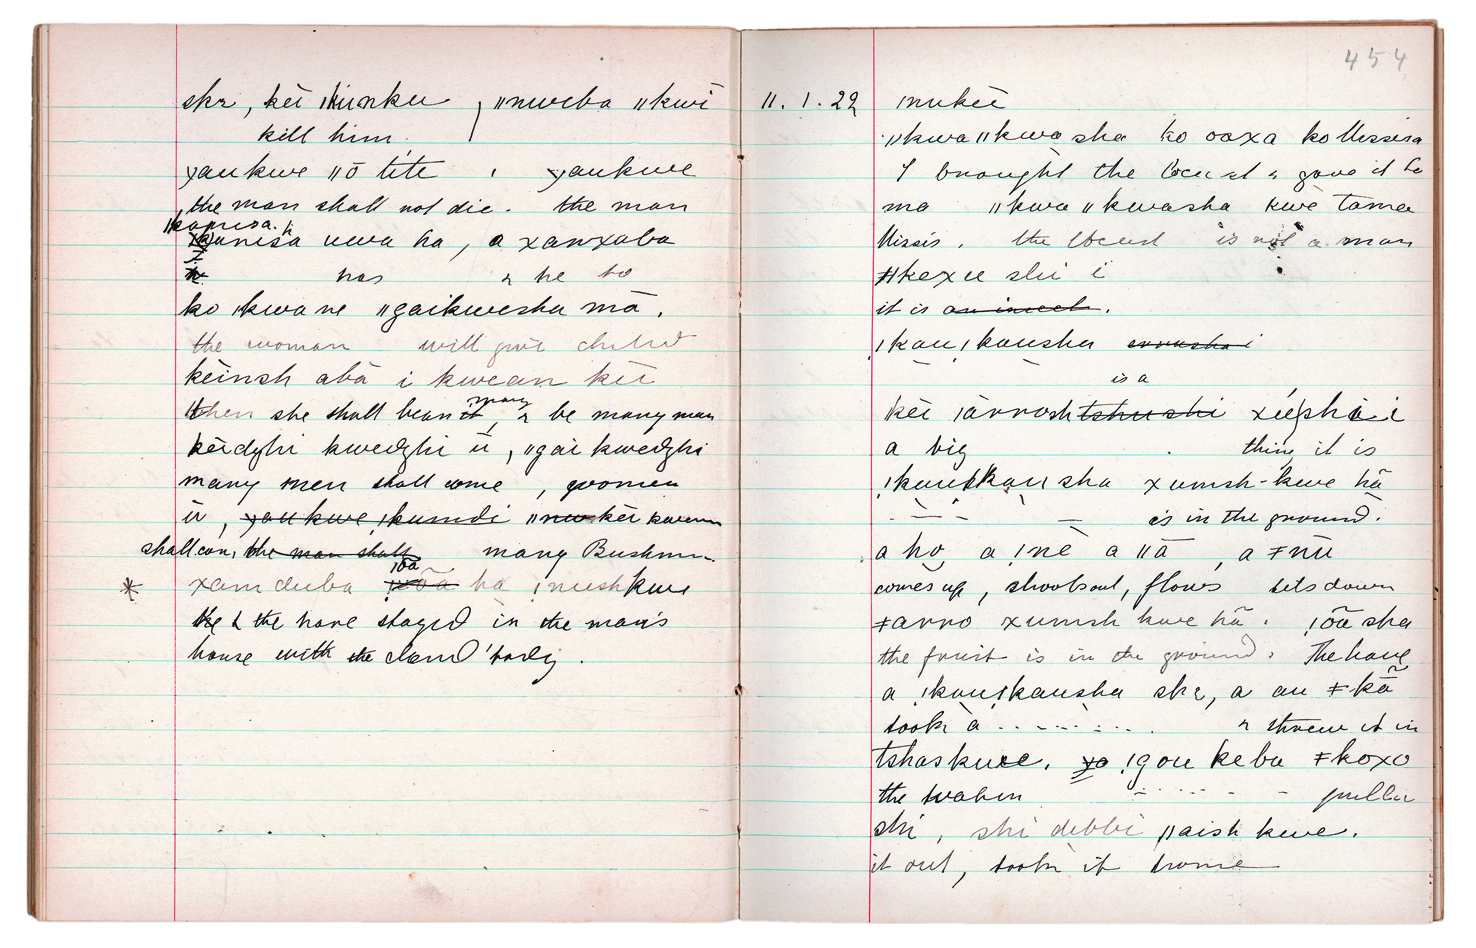 ske, kēi ǀkunku , ǁnweba ǁkwi
kill him.
yaukwe ǁō tite , yaukwe
the man shall not die. the man
ǁkanisa
uwa ha, a xanxaba
has & he to
ko ǀkwa ne ǁgaikwesha mā,
the woman will give child
keinsh abā i kwean kū
then she shall bear many, & be many men
kēidzhi kwedzhi ū, ǁgai kwedzhi
many men shall come, women
ū, yaukwe ǃkumdi ǁnu kēi kweun
shall com, the man shall many Bushmen.
ǃōa
* xam duba ha ǃnushkwe
He & the hare stayed in the man's
house with the dead body.
454
11.1.22 ǀnukēi
ǁkwaǁkwa sha ko ooxa ko Missisa
I brought the locust & gave it to
ma ǁkwaǁkwasha kwe tamee
Missis. the locust is not a man
ǂkexu shi i
it is an insect.
ǃkauǃkausha i
is a
kēi ǀarrosh tshushi xu shi i
a big thing it is
ǃkauǃkau sha xumsh-kwe hā
is in the ground.
a ho a ǃnē a ǁā, a ǂnū
comes up, shoots out, flowers sets down
ǂarro xumsh kwe hā. ǃōā sha
the fruit is in the ground. The hare
a ǃkauǃkausha she, a au ǂkā
took a & threw it in
tshaskwe. ya ǃgou keba ǂkoxo
the water pulled
shi, shi debbi ǁaish kwe.
it out, took it home